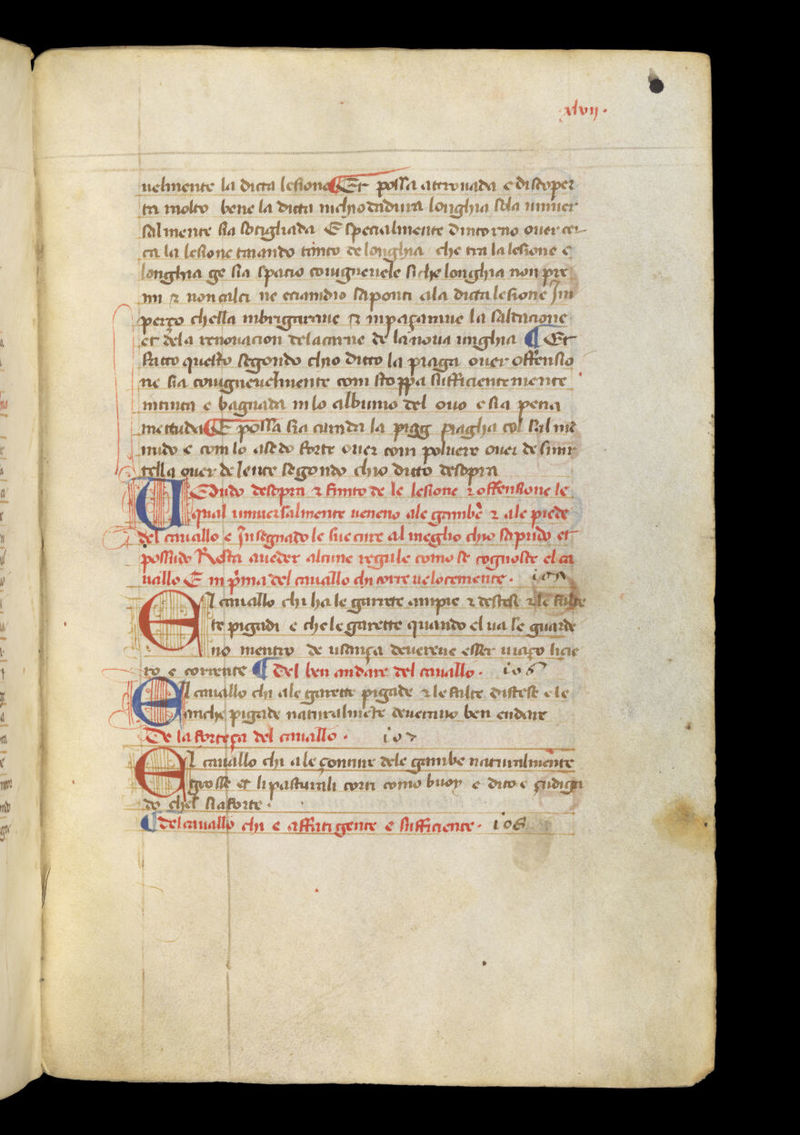 xlvij·
uelmente la dicta lesione Et possa atrouada e discoper
ta molto bene la dicta inchiodadura longhia sola uniuer
salmente sia sotigliada E specialmente dintorno ouer cer
ca la lesione taiando tanto de longhia che tra la lesione e
longhia ge sia spacio conugneuele si che longhia non pre
mi ⁊ non calci ne eciamdio saponti ala dicta lesione Jm
perço chella inbrigaraue ⁊ inpaçaraue la saldacione
et dela renouacion dela carne de la noua unghia ¶ Et
facto questo segondo chio ditto la piaga ouer offensio
ne sia conugneuelmente com stoppa sufficientemente
intinta e bagnada in lo albumo del ouo e sia pena
mettuda E possa sia curada la piag piagha col sal me
nudo e com lo asedo forte ouer com poluere ouer de
tella ouer de lente segondo chio ditto desopra
Uedudo desopra ⁊ finito de le lesione ⁊ offensione le
qual uniuersalmente ueneno ale gambe ⁊ ale piede
del cauallo e Insegnado le sue cure al meglio chio sapudo et
possudo Resta aueder alcune regule como se cognosce el ca
uallo E in p̃ma del cauallo chi corre uelocemente·
El cauallo chi ha le garrete ampie ⁊ destese ⁊ le falce
te pigadi e che le garette quando el ua se guarde
no mentro de usança deuereue esser uiaço licie
ro e corrente ¶ Del ben andare del cauallo·
El cauallo chi ale garette pigade ⁊ le falce distese e le
anche pigade naturalmẽte deuerauo ben endare
De la forteça del cauallo· 107
El cauallo chi a le çonture dele gambe naturalmente
grosse et li pasturali corti como buoy e dito e çudiga
do chel sia forte·
¶ Del cauallo chi e affatigente e sufficiente· 108